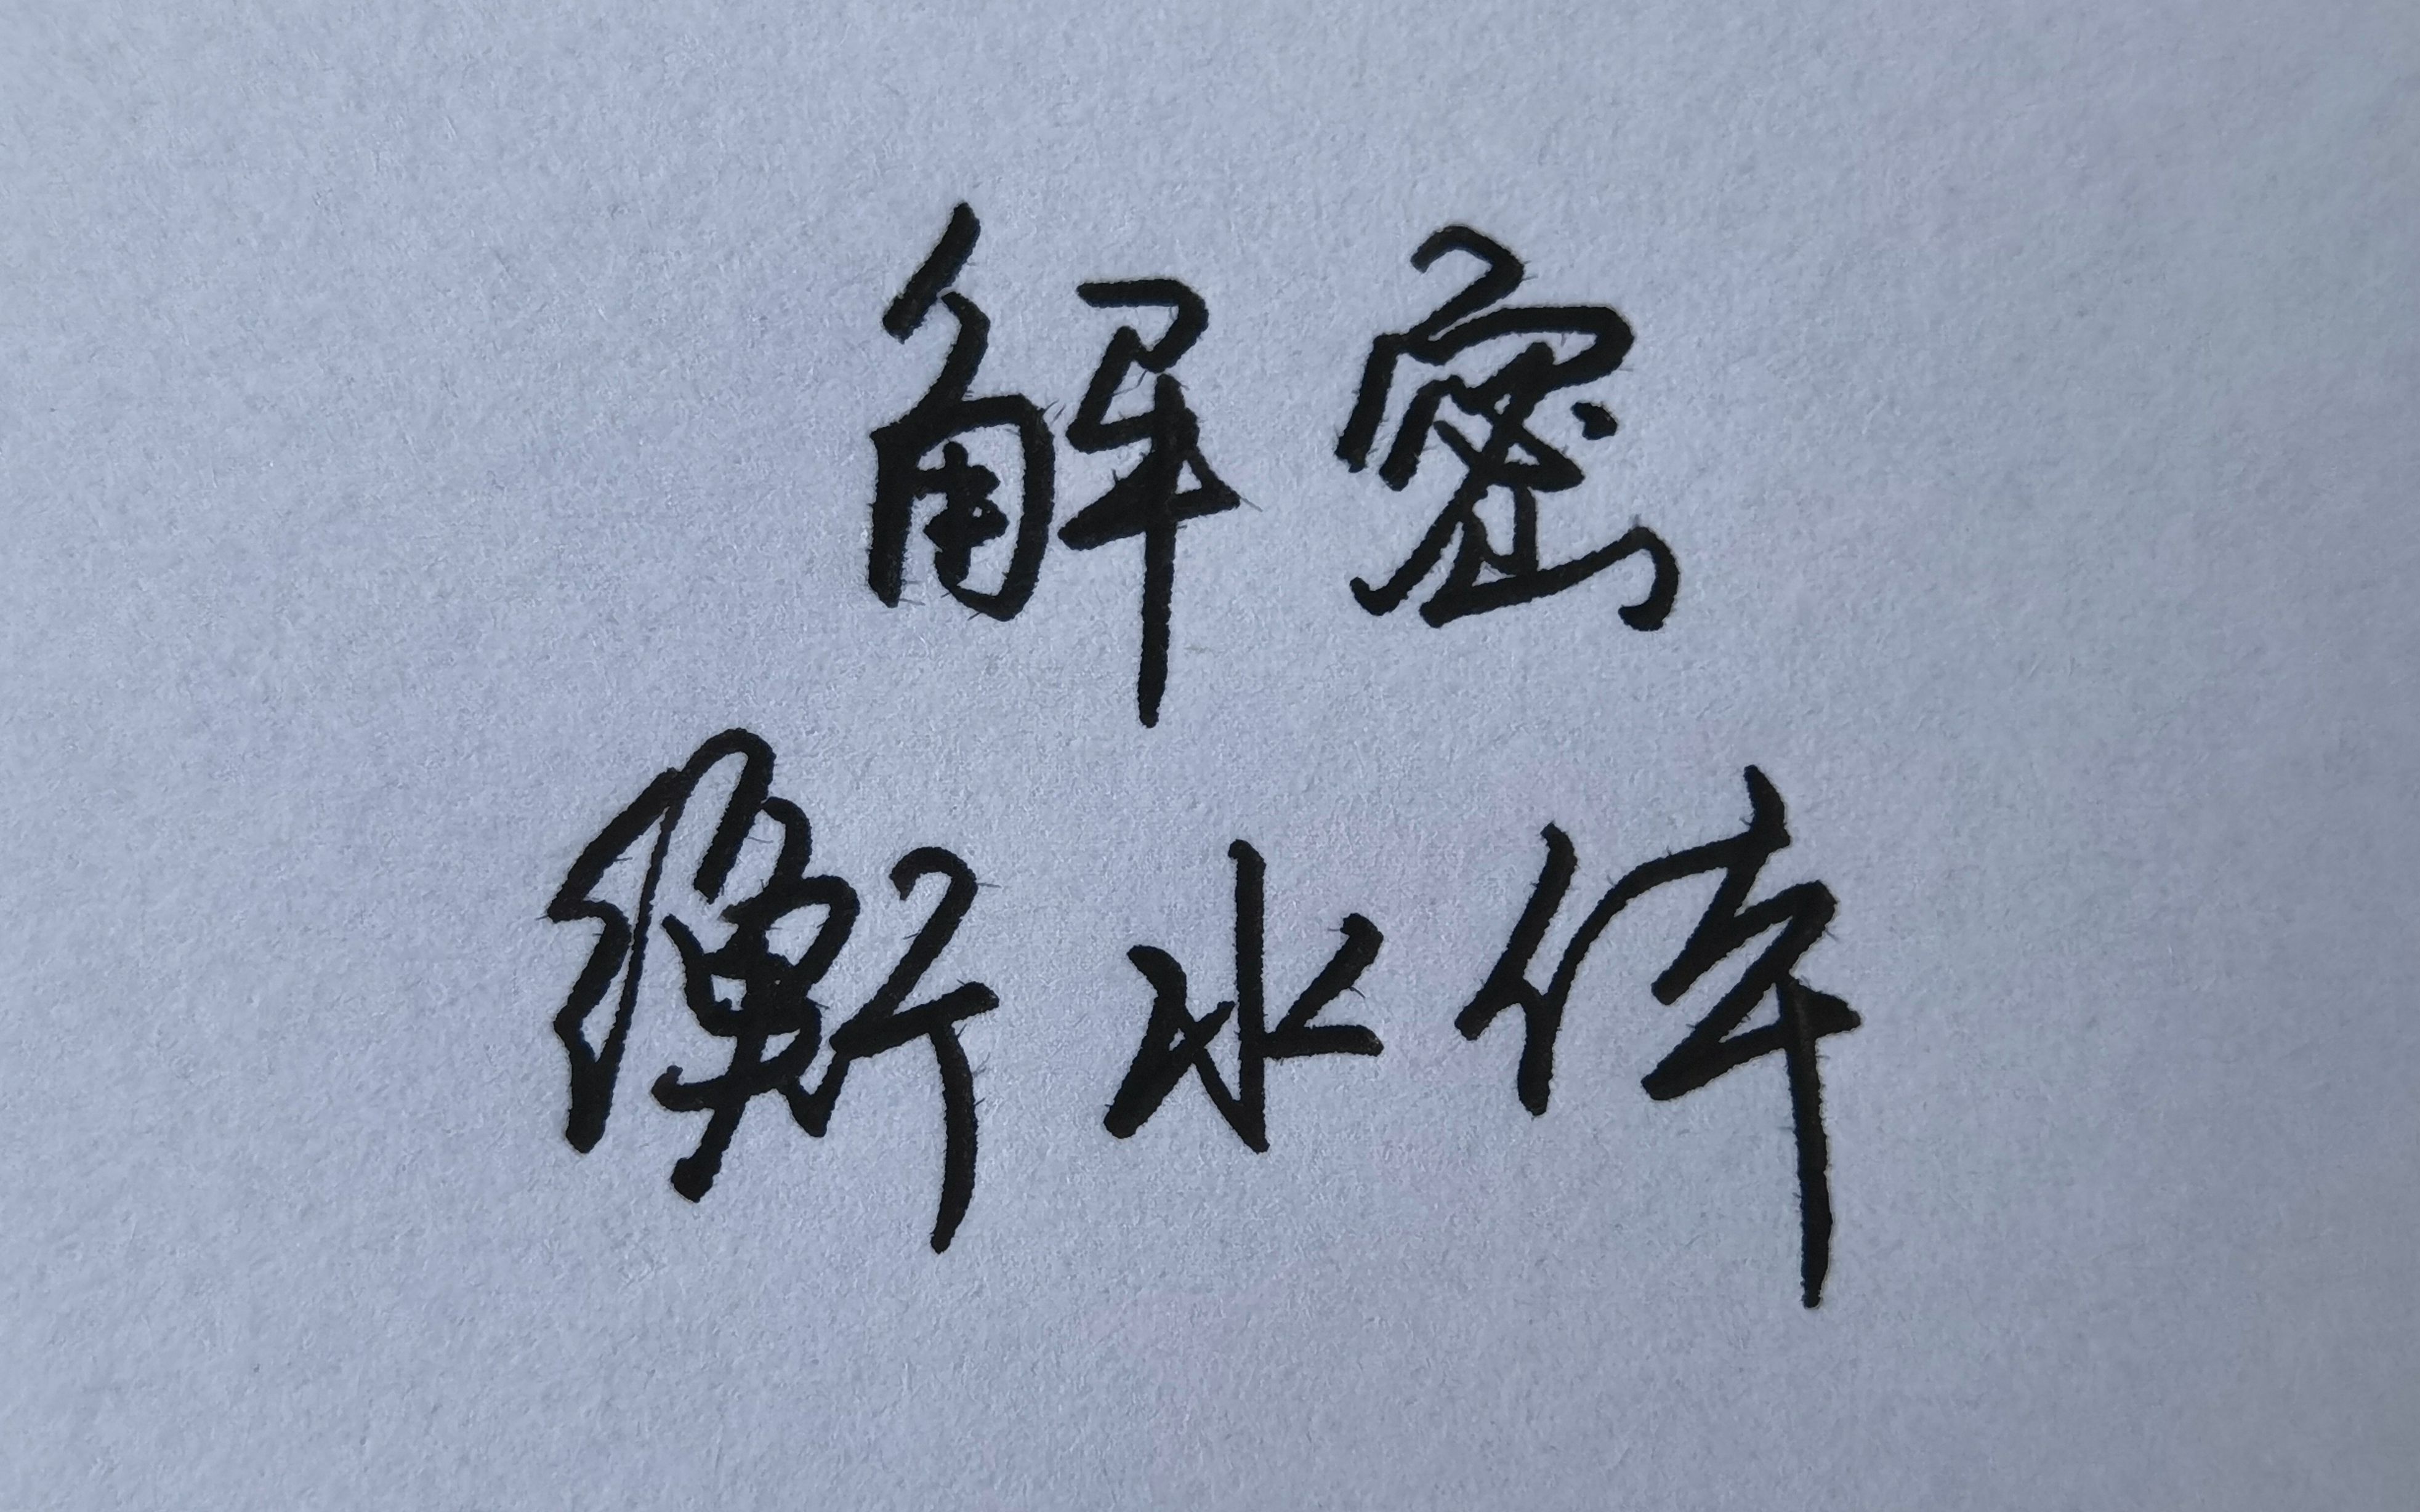 解密
衡水体